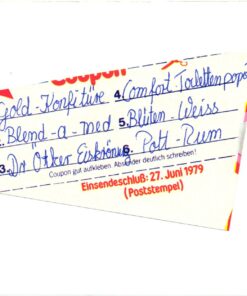 Coupon
Gold-Konfitüre 4. Comfort-Toilettenpapier
2. Blend-a-med 5. Blüten-Weiss
3. Dr. Ötker Eiskrönung 6. Pott-Rum
Coupon gut aufkleben. Absender deutlich schreiben!
Einsendeschluß: 27. Juni 1979
(Poststempel)